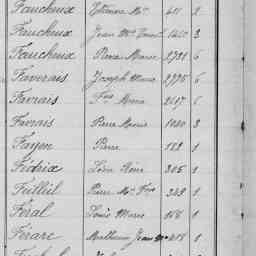 Faucheux 411 2
Faucheux Jean Mie 1460 3
Faucheux Pierre Marie 2731 6
Faverais Joseph Marie 2775 6
Favrais Frs Marie 2617 6
Favrais Pierre Marie 1080 3
Fayen Pierre 129 1
Fédrix Léon René 305 1
Feilleul Pierre Mie Frs 349 1
Féral Louis Marie 158 1
Férare Mathurin Jean Mie 218 1